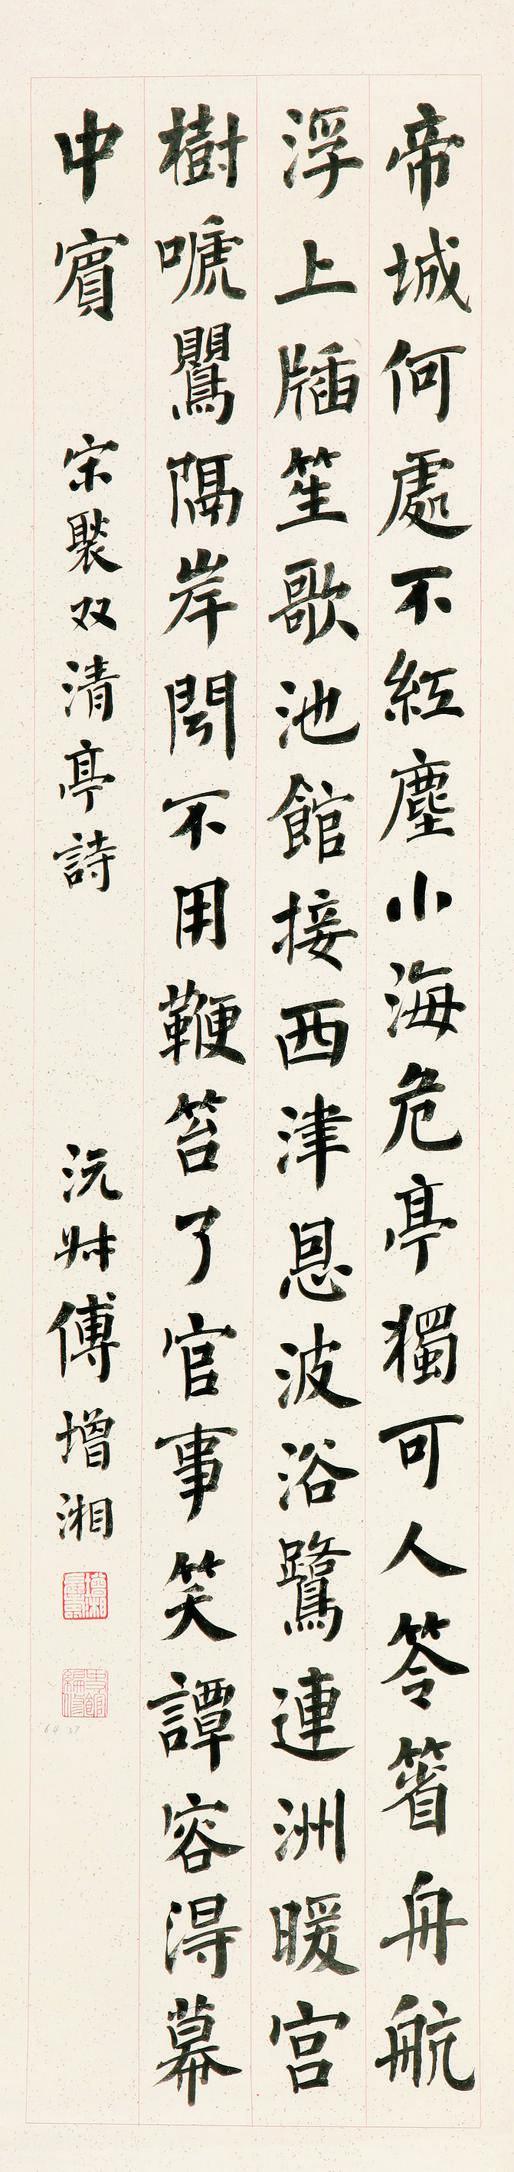 帝城何處不紅塵小海危亭獨可人笭箵舟航
浮上牐笙歌池館接西津恩波浴鷺連洲暖宮
樹嗁鸎隔岸聞不用鞭笞了官事笑譚容得幕
中賓
宋褧双清亭詩
沅尗傅增湘